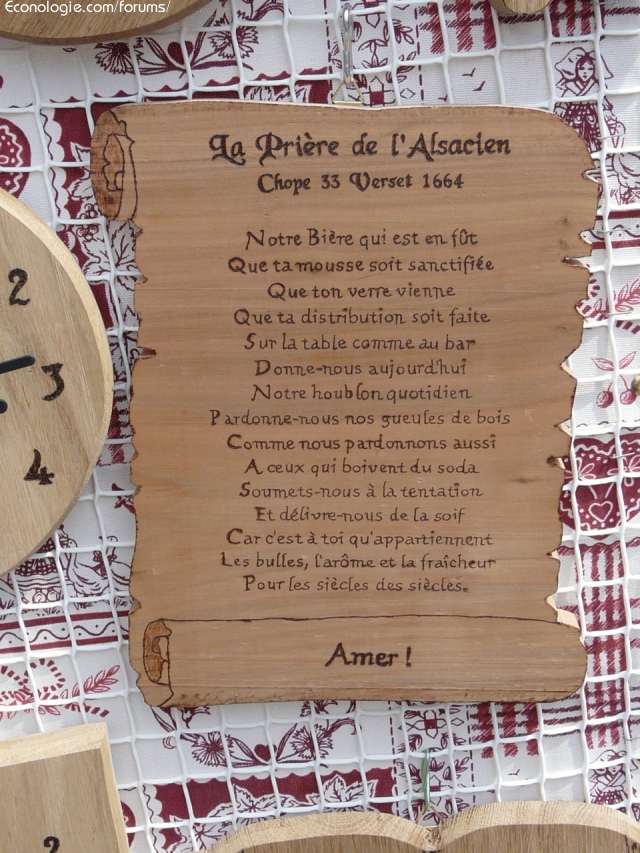 Econologie.com/forums/
La Prière de l'Alsacien
Chope 33 Verset 1664
Notre Bière qui est en fût
Que ta mousse soit sanctifiée
Que ton verre vienne
Que ta distribution soit faite
Sur la table comme au bar
Donne-nous aujourd'hui
Notre houblon quotidien
Pardonne-nous nos gueules de bois
Comme nous pardonnons aussi
A ceux qui boivent du soda
Soumets-nous à la tentation
Et délivre-nous de la soif
Car c'est à toi qu'appartiennent
Les bulles, l'arôme et la fraîcheur
Pour les siècles des siècles.
Amer !
2
3
4
2